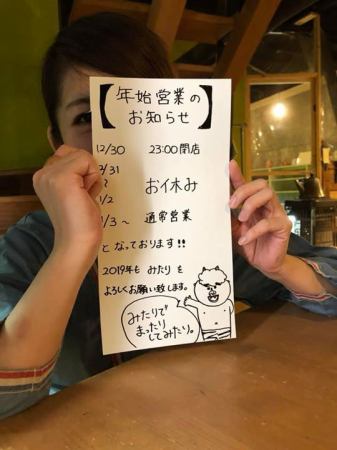 【年始営業の
お知らせ】
12/30 23:00閉店
12/31
〜 お休み
1/2
1/3〜 通常営業
となっております!!
2019年も みたり を
よろしくお願い致します。
みたりで
まったり
してみたり。